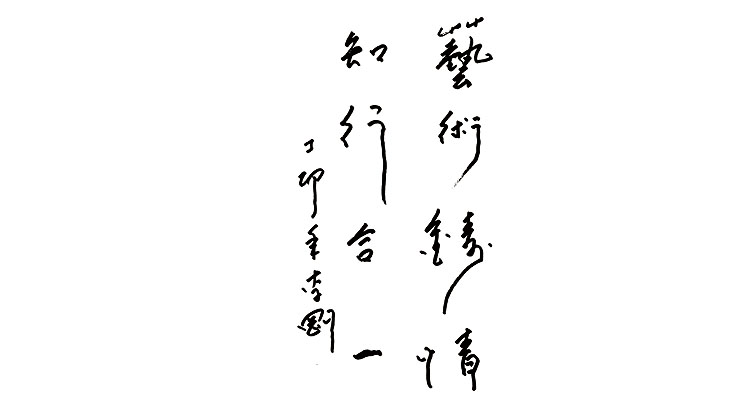 藝術鑄情
知行合一
丁卯年李剛